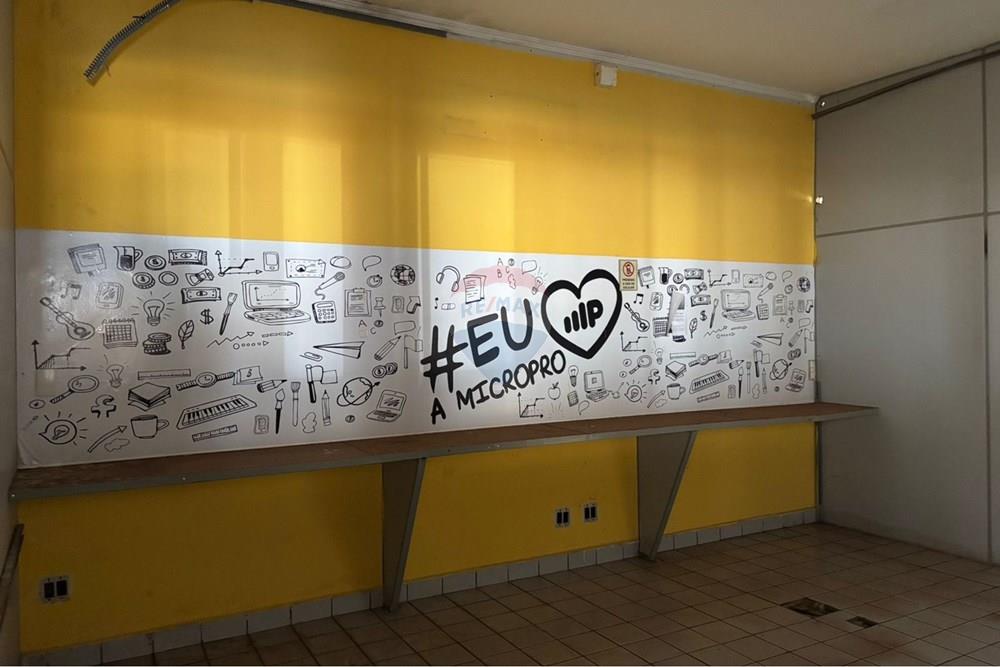 #EU
IIIP
A MICROPRO
RE/MAX
A
B
C
$